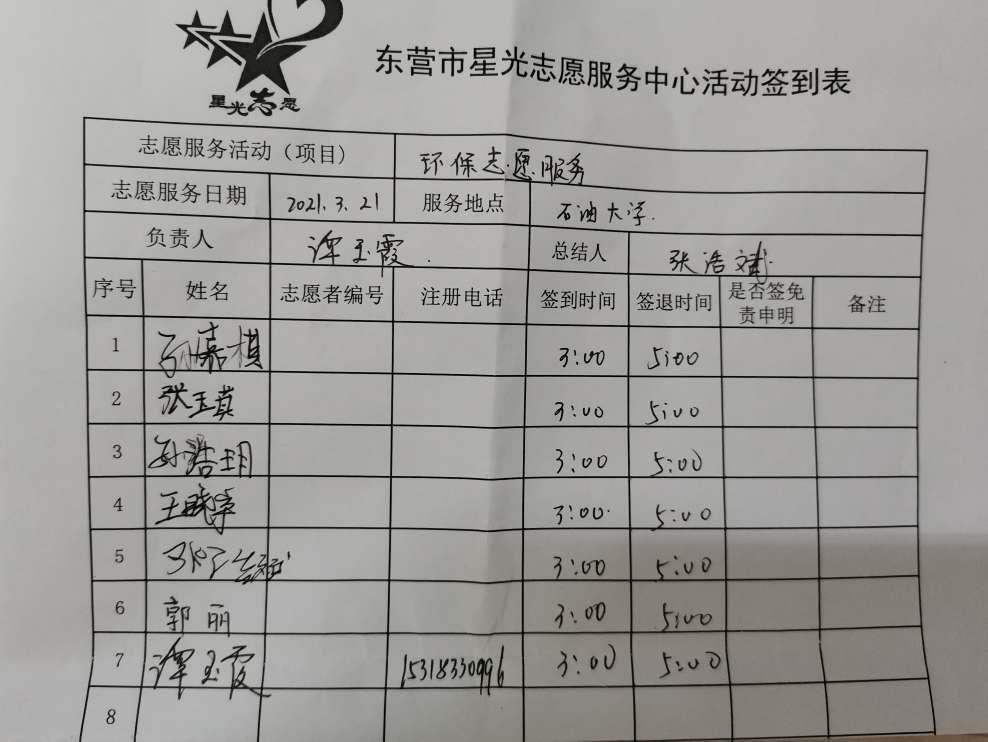 星光志愿
东营市星光志愿服务中心活动签到表
志愿服务活动（项目） 环保志愿服务
志愿服务日期 2021.3.21 服务地点 石油大学.
负责人 谭玉霞. 总结人 张浩斌.
序号 姓名 志愿者编号 注册电话 签到时间 签退时间 是否签免责申明 备注
1 孙嘉棋 3:00 5:00
2 张玉真 3:00 5:00
3 孙浩玥 3:00 5:00
4 王 3:00. 5:00
5 张 3:00 5:00
6 郭丽 3:00 5:00
7 谭玉霞 15318330996 3:00 5:00
8